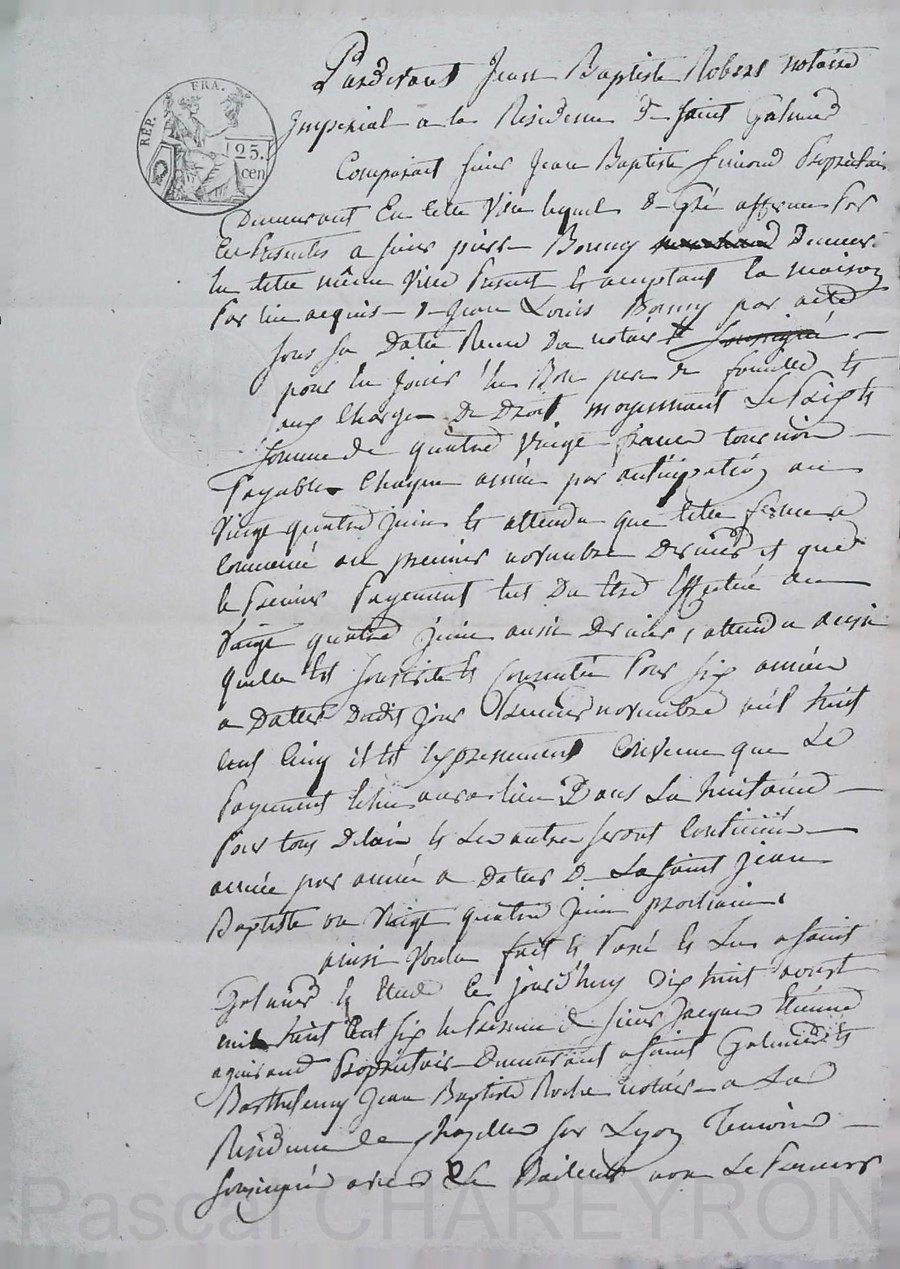 REP. FRA.
25. cen
Pardevant Jean Baptiste Robert notaire
Imperial a la Residence de Saint Galmier
Comparant sieur Jean Baptiste Simond Proprietaire
Demeurant En cette Ville lequel de Gré afferme Par
Ces Presentes a sieur pierre Bonny demeur.
En cette même Ville Present et acceptant la maison
Par lui acquise de Jean Louis Bonny par acte
sous sa Date Reçu Du notaire
pour En jouir En Bon pere de famille et
aux Charges De Droit moyennant Le Prix et
somme de quatre Vingt francs tournois
Payable Chaque année par anticipation au
Vingt quatre juin et attendu que cette ferme a
commencé au premier novembre Dernier et que
le Premier Payement Du Etre Effectué au
Vingt quatre juin aussi Dernier, attendu aussi
quelle Est Consentie Pour six années
a Dater Dudit jour Premier novembre mil huit
cent Cinq il Est Expressement Convenu que Le
Payement aura lieu Dans La huitaine
Pour tous Delais et Les autres seront Continués
année par année a Dater De La Saint Jean
Baptiste ou Vingt quatre Juin prochain.
ainsi Voulu fait et Passé et Lu a Saint
Galmier Etude Ce jourd'huy Dix huit aoust
mil huit Cent Six En Presence de sieur Jacques Etienne
Proprietaire Demeurant a Saint Galmier et
Barthelemy Jean Baptiste Roche notaire a La
Residence de Chazelles sur Lyon Temoins
soussignés avec Le Bailleur non Le Fermier
Pascal CHAREYRON